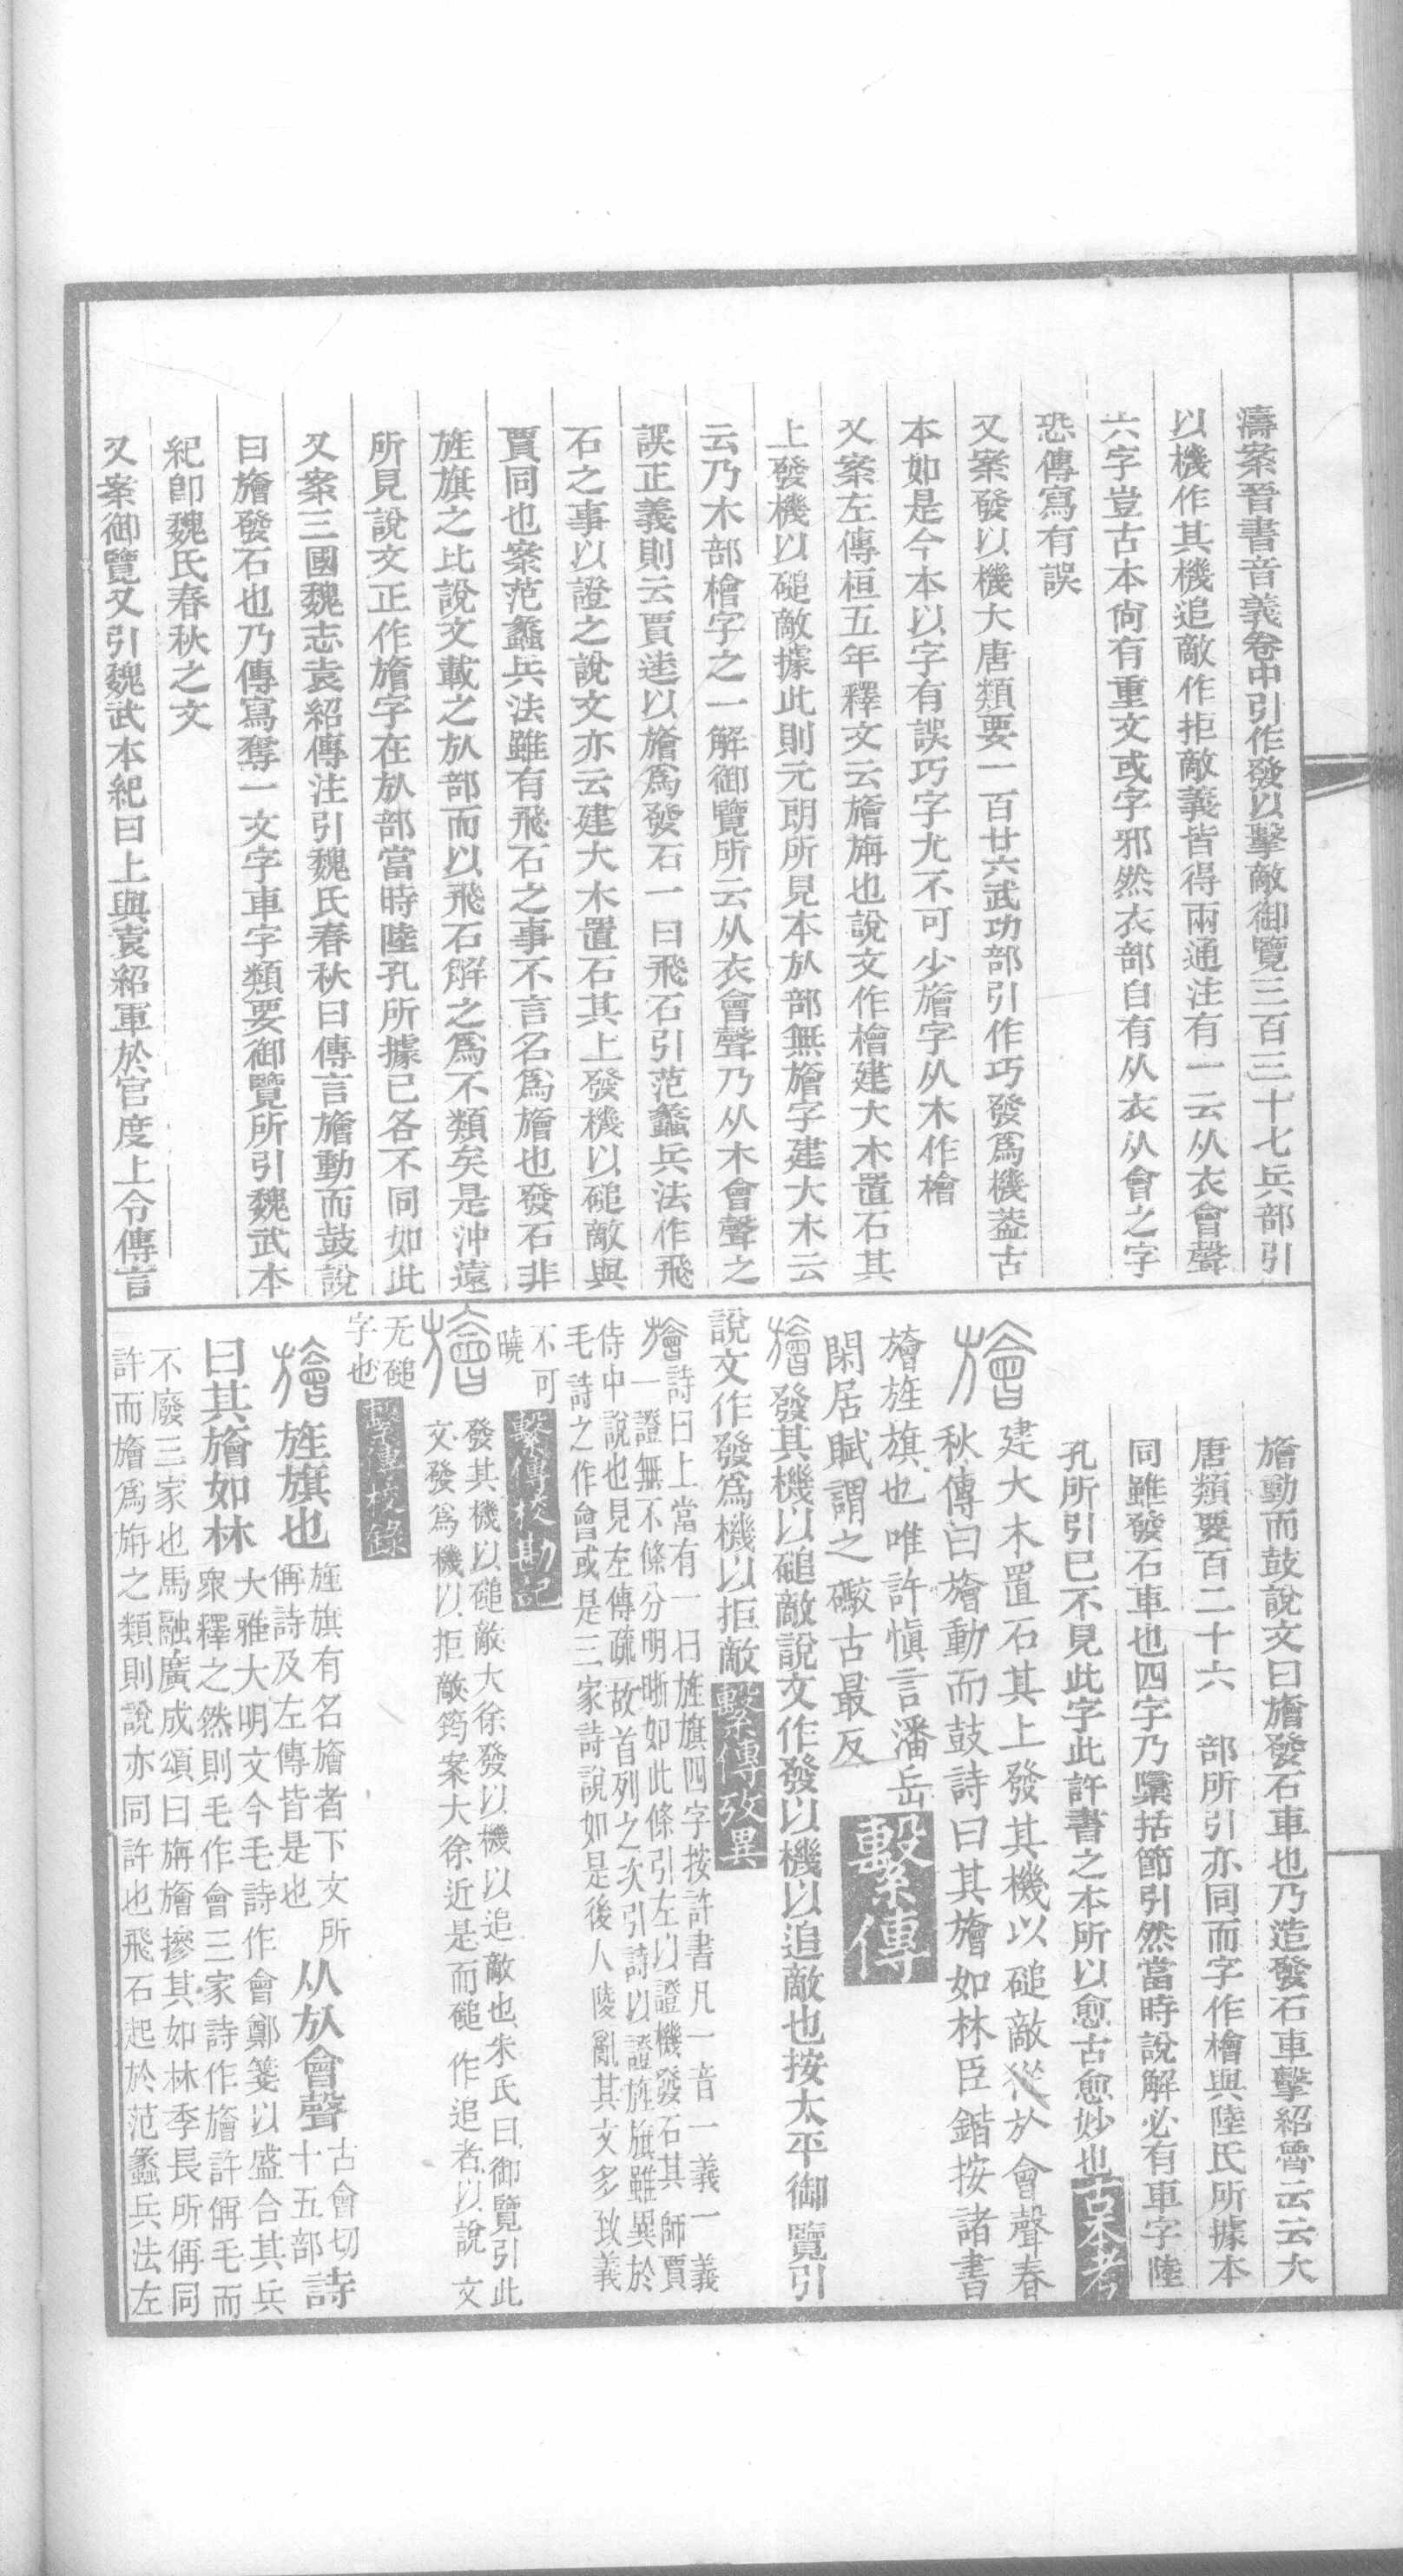 濤案晉書音義卷中引作發以擊敵御覽三百三十七兵部引
以機作其機追敵作拒敵義皆得兩通注有一云从衣會聲
六字豈古本尙有重文或字邪然衣部自有从衣从會之字
恐傳寫有誤
又案發以機大唐類要一百廿六武功部引作巧發爲機葢古
本如是今本以字有誤巧字尤不可少旝字从木作檜
又案左傳桓五年釋文云旝旃也說文作檜建大木置石其
上發機以磓敵據此則元朗所見本㫃部無旝字建大木云
云乃木部檜字之一解御覽所云从衣會聲乃从木會聲之
誤正義則云賈逵以旝爲發石一曰飛石引范蠡兵法作飛
石之事以證之說文亦云建大木置石其上發機以磓敵與
賈同也案范蠡兵法雖有飛石之事不言名爲旝也發石非
旌旗之比說文載之㫃部而以飛石解之爲不類矣是沖遠
所見說文正作旝字在㫃部當時陸孔所據已各不同如此
又案三國魏志袁紹傳注引魏氏春秋曰傳言旝動而鼓說
曰旝發石也乃傳寫奪一文字車字類要御覽所引魏武本
紀卽魏氏春秋之文
又案御覽又引魏武本紀曰上與袁紹軍於官度上令傳言
旝動而鼓說文曰旝發石車也乃造發石車擊紹營云云大
唐類要百二十六　部所引亦同而字作檜與陸氏所據本
同雖發石車也四字乃檃括節引然當時說解必有車字陸
孔所引已不見此字此許書之本所以愈古愈妙也古本考
旝建大木置石其上發其機以磓敵從㫃會聲春
秋傳曰旝動而鼓詩曰其旝如林臣鍇按諸書
旝旌旗也唯許愼言潘岳
閑居賦謂之礮古最反繫傳
旝發其機以磓敵說文作發以機以追敵也按太平御覽引
說文作發爲機以拒敵繫傳攷異
旝詩曰上當有一曰旌旗四字按許書凡一音一義一義
一證無不條分明晰如此條引左以證機發石其師賈
侍中說也見左傳疏故首列之次引詩以證旌旗雖異於
毛詩之作會或是三家詩說如是後人陵亂其文多致義
不可
曉繫傳校勘記
旝發其機以磓敵大徐發以機以追敵也朱氏曰御覽引此
文發爲機以拒敵筠案大徐近是而磓作追者以說文
无磓
字也繫傳校錄
旝旌旗也旌旗有名旝者下文所
偁詩及左傳皆是也从㫃會聲古會切
十五部詩
曰其旝如林大雅大明文今毛詩作會鄭箋以盛合其兵
衆釋之然則毛作會三家詩作旝許偁毛而
不廢三家也馬融廣成頌曰旃旝摻其如林季長所偁同
許而旝爲旃之類則說亦同許也飛石起於范蠡兵法左